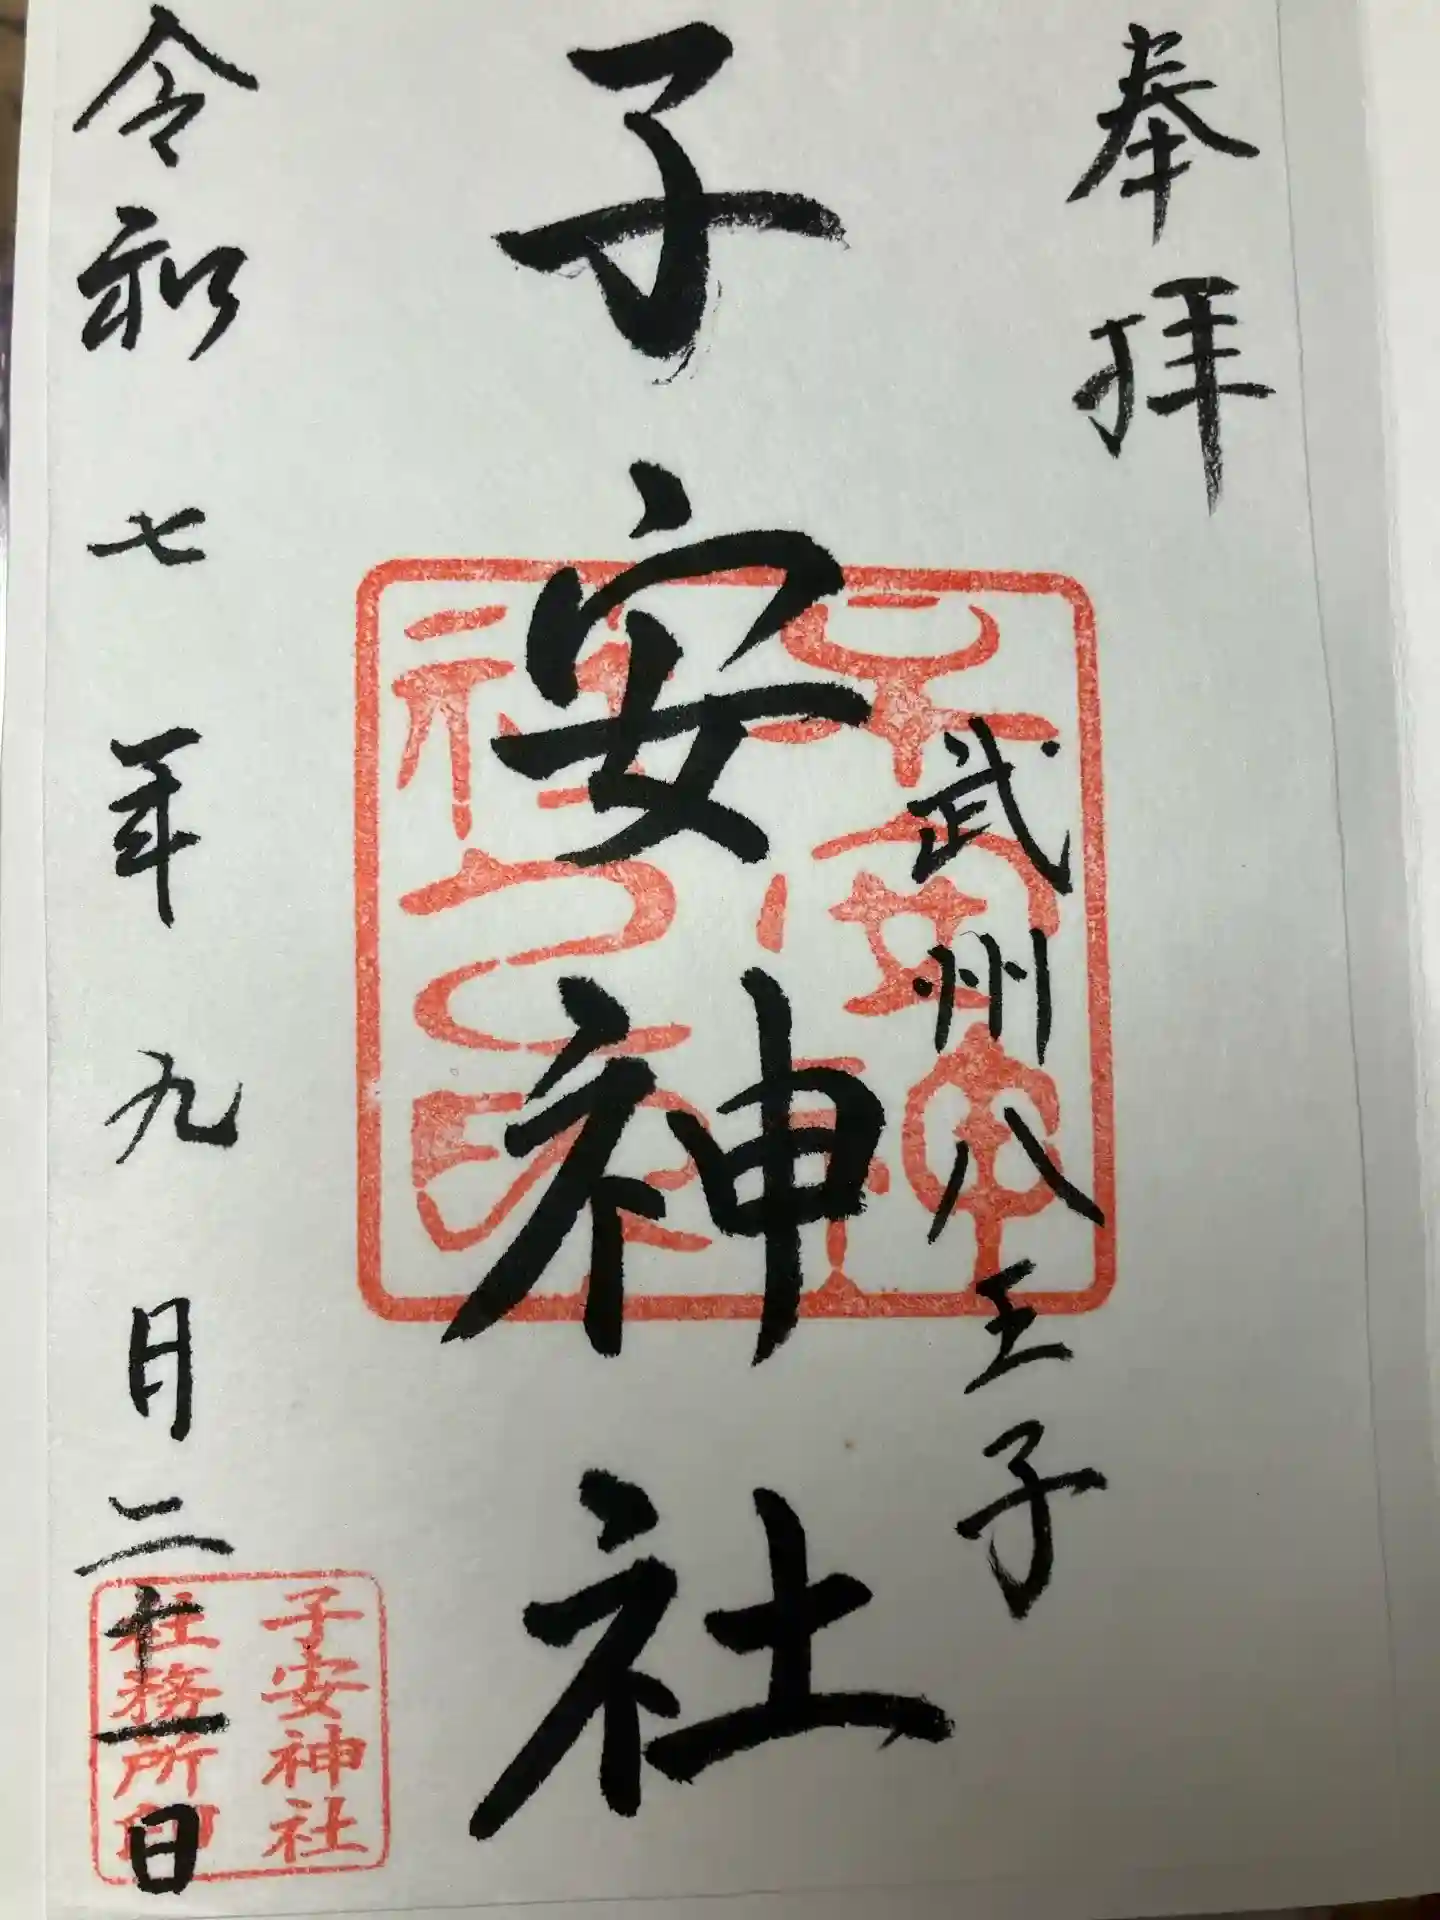 奉拝
武州八王子
子安神社
令和七年九月二十一日
子安神社
社務所印